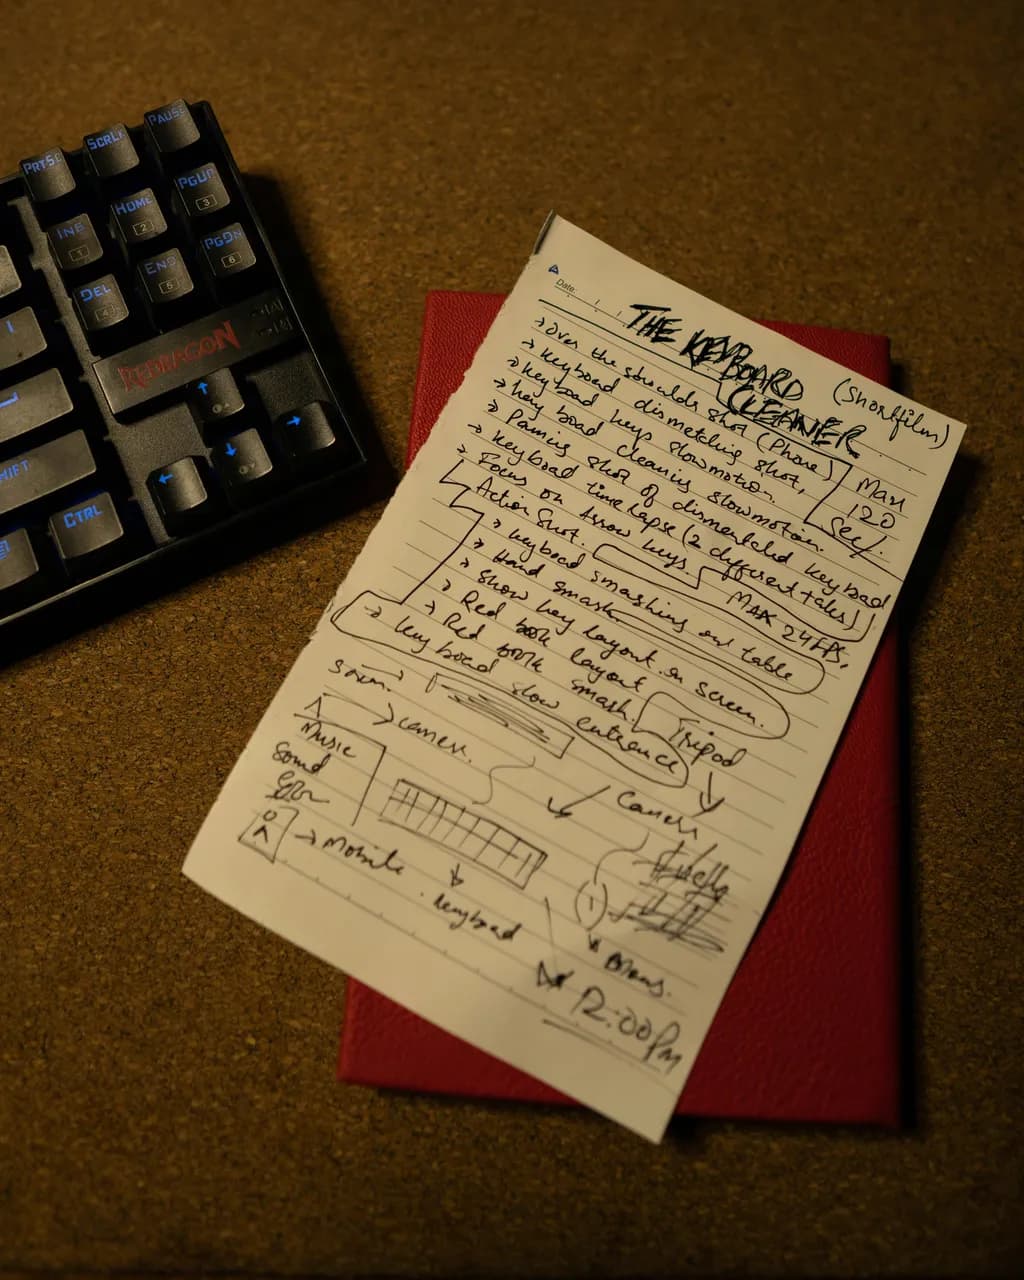 PRTSC
SCRLK
PAUSE
INS
1
HOME
2
PGUP
3
DEL
4
END
5
PGDN
6
REDRAGON
SHIFT
CTRL
Date:
THE KEYBOARD
CLEANER
(Shortfilm)
→ Over the shoulder shot (Phone)
→ Keyboard dismetling shot,
→ keyboad keys slowmotion.
→ key boad cleaning slowmotion.
→ Paning shot of dismentled keybad
→ keyboad time lapse (2 different takes)
→ Focus on Arrow keys.
Max
120
Sec/.
MAX 24FPS,
Action Shot.
→ keyboad smashing on table
→ Hand smash
→ Show key layout on screen.
→ Red book layout
→ Red book smash.
→ keyboad slow entrance
Tripod
→ camera.
Music
Sound
→ Mobile.
keyboad
Camera
12:00Pm